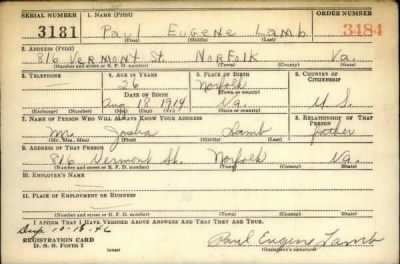 SERIAL NUMBER 1. NAME (Print) ORDER NUMBER
3181 Paul Eugene Lamb 3484
(First) (Middle) (Last)
2. ADDRESS (Print)
816 Vermont St. Norfolk Va.
(Number and street or R. F. D. number) (Town) (County) (State)
3. TELEPHONE 4. AGE IN YEARS 5. PLACE OF BIRTH 6. COUNTRY OF CITIZENSHIP
26 Norfolk
DATE OF BIRTH (Town or county)
Aug 18 1914 Va. U S.
(Exchange) (Number) (Mo.) (Day) (Yr.) (State or country)
7. NAME OF PERSON WHO WILL ALWAYS KNOW YOUR ADDRESS 8. RELATIONSHIP OF THAT PERSON
Mr. Lamb father
(Mr., Mrs., Miss) (First) (Middle) (Last)
9. ADDRESS OF THAT PERSON
816 Vermont St. Norfolk Va.
(Number and street or R. F. D. number) (Town) (County) (State)
10. EMPLOYER'S NAME
11. PLACE OF EMPLOYMENT OR BUSINESS
(Number and street or R. F. D. number) (Town) (County) (State)
I AFFIRM THAT I HAVE VERIFIED ABOVE ANSWERS AND THAT THEY ARE TRUE.
10-16-
REGISTRATION CARD
D. S. S. Form 1
Paul Eugene Lamb